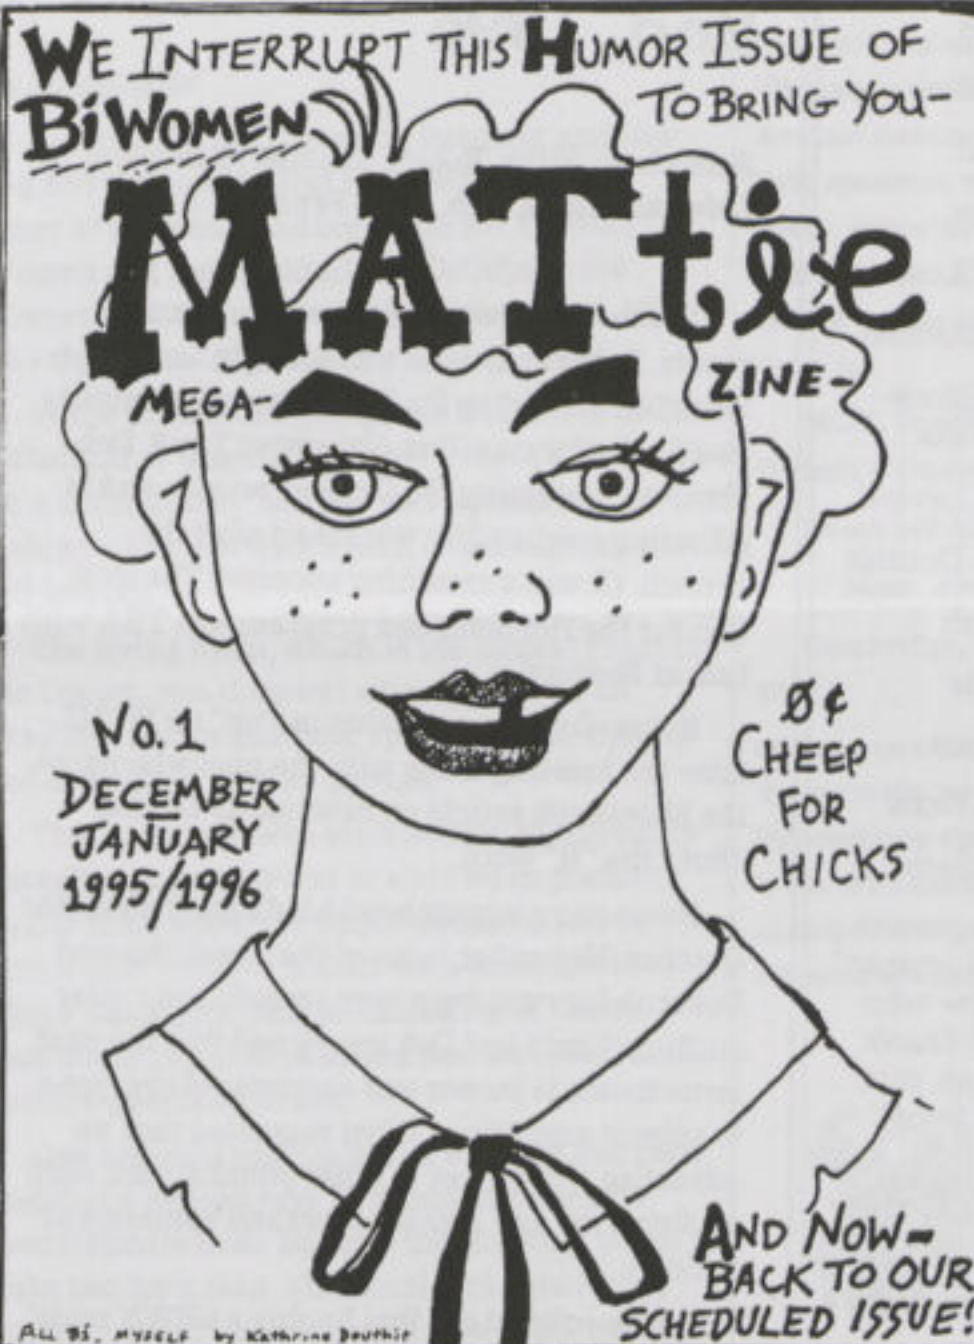 WE INTERRUPT THIS HUMOR ISSUE OF
BiWOMEN TO BRING YOU-
MATtie
MEGA- ZINE-
No. 1
DECEMBER
JANUARY
1995/1996
0¢
CHEEP
FOR
CHICKS
AND NOW-
BACK TO OUR
SCHEDULED ISSUE!
ALL Bi, MYSELF by Kathrine Douthit